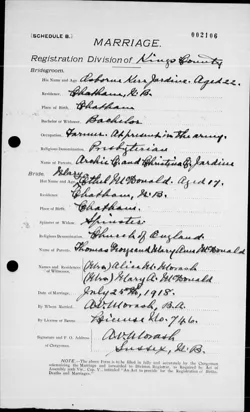 (SCHEDULE B.)
002106
MARRIAGE.
Registration Division of Kings County
Bridegroom.
His Name and Age Osborne Ker Jardine. Aged 22.
Residence Chatham, N.B.
Place of Birth Chatham
Bachelor or Widower Bachelor
Occupation Farmer. At present in the army.
Religious Denomination Presbyterian
Name of Parents Archie C. and Christina E. Jardine
Bride. Mary
Her Name and Age Ethel McDonald. Aged 17.
Residence Chatham, N.B.
Place of Birth Chatham.
Spinster or Widow Spinster
Religious Denomination Church of England
Name of Parents Thomas George and Mary Ann McDonald
Names and Residences of Witnesses. (Mrs) Alice M. Morash
(Mrs) Mary A. McDonald
Date of Marriage July 2 1918.
By Whom Married A.V. Morash, B.A.
By License or Banns License No. 746.
Signature and P. O. Address of Clergyman. A.V. Morash
Sussex, N.B.
NOTE.—The above form is to be filled in fully and accurately by the Clergyman solemnizing the Marriage and forwarded to Division Registrar, as required by Act of Assembly Vic. Cap. intituled "An Act to provide for the Registration of Births, Deaths and Marriages."